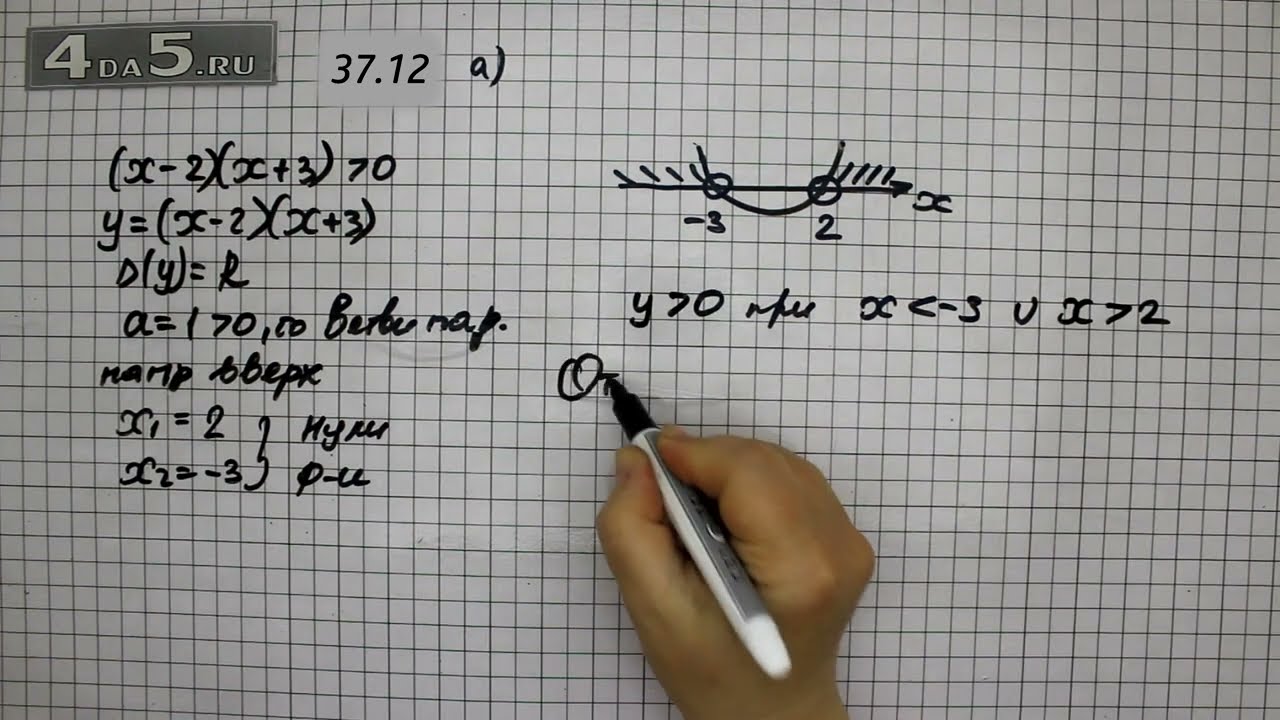 4DA5.RU
37.12 а)
(x-2)(x+3)>0
y=(x-2)(x+3)
D(y)=R
a=1>0, то ветви пар.
напр вверх
x₁=2
x₂=-3
нули
ф-и
-3 2 x
y>0 при x<-3 ∪ x>2